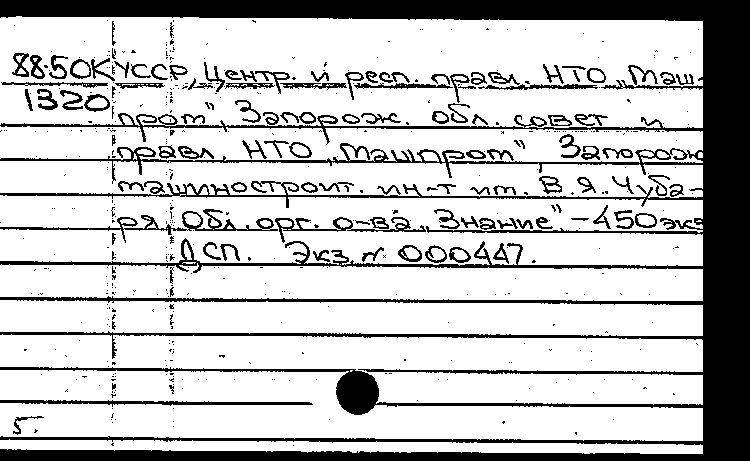 88-50К УССР, Центр. и респ. правл. НТО „Маш-
1320
пром", Запорож. обл. совет и
правл. НТО „Машпром", Запорож
машиностроит. ин-т им. В.Я. Чуба-
ря, Обл. орг. о-ва „Знание". - 450 экз
ДСП. Экз. № 000447.
5.